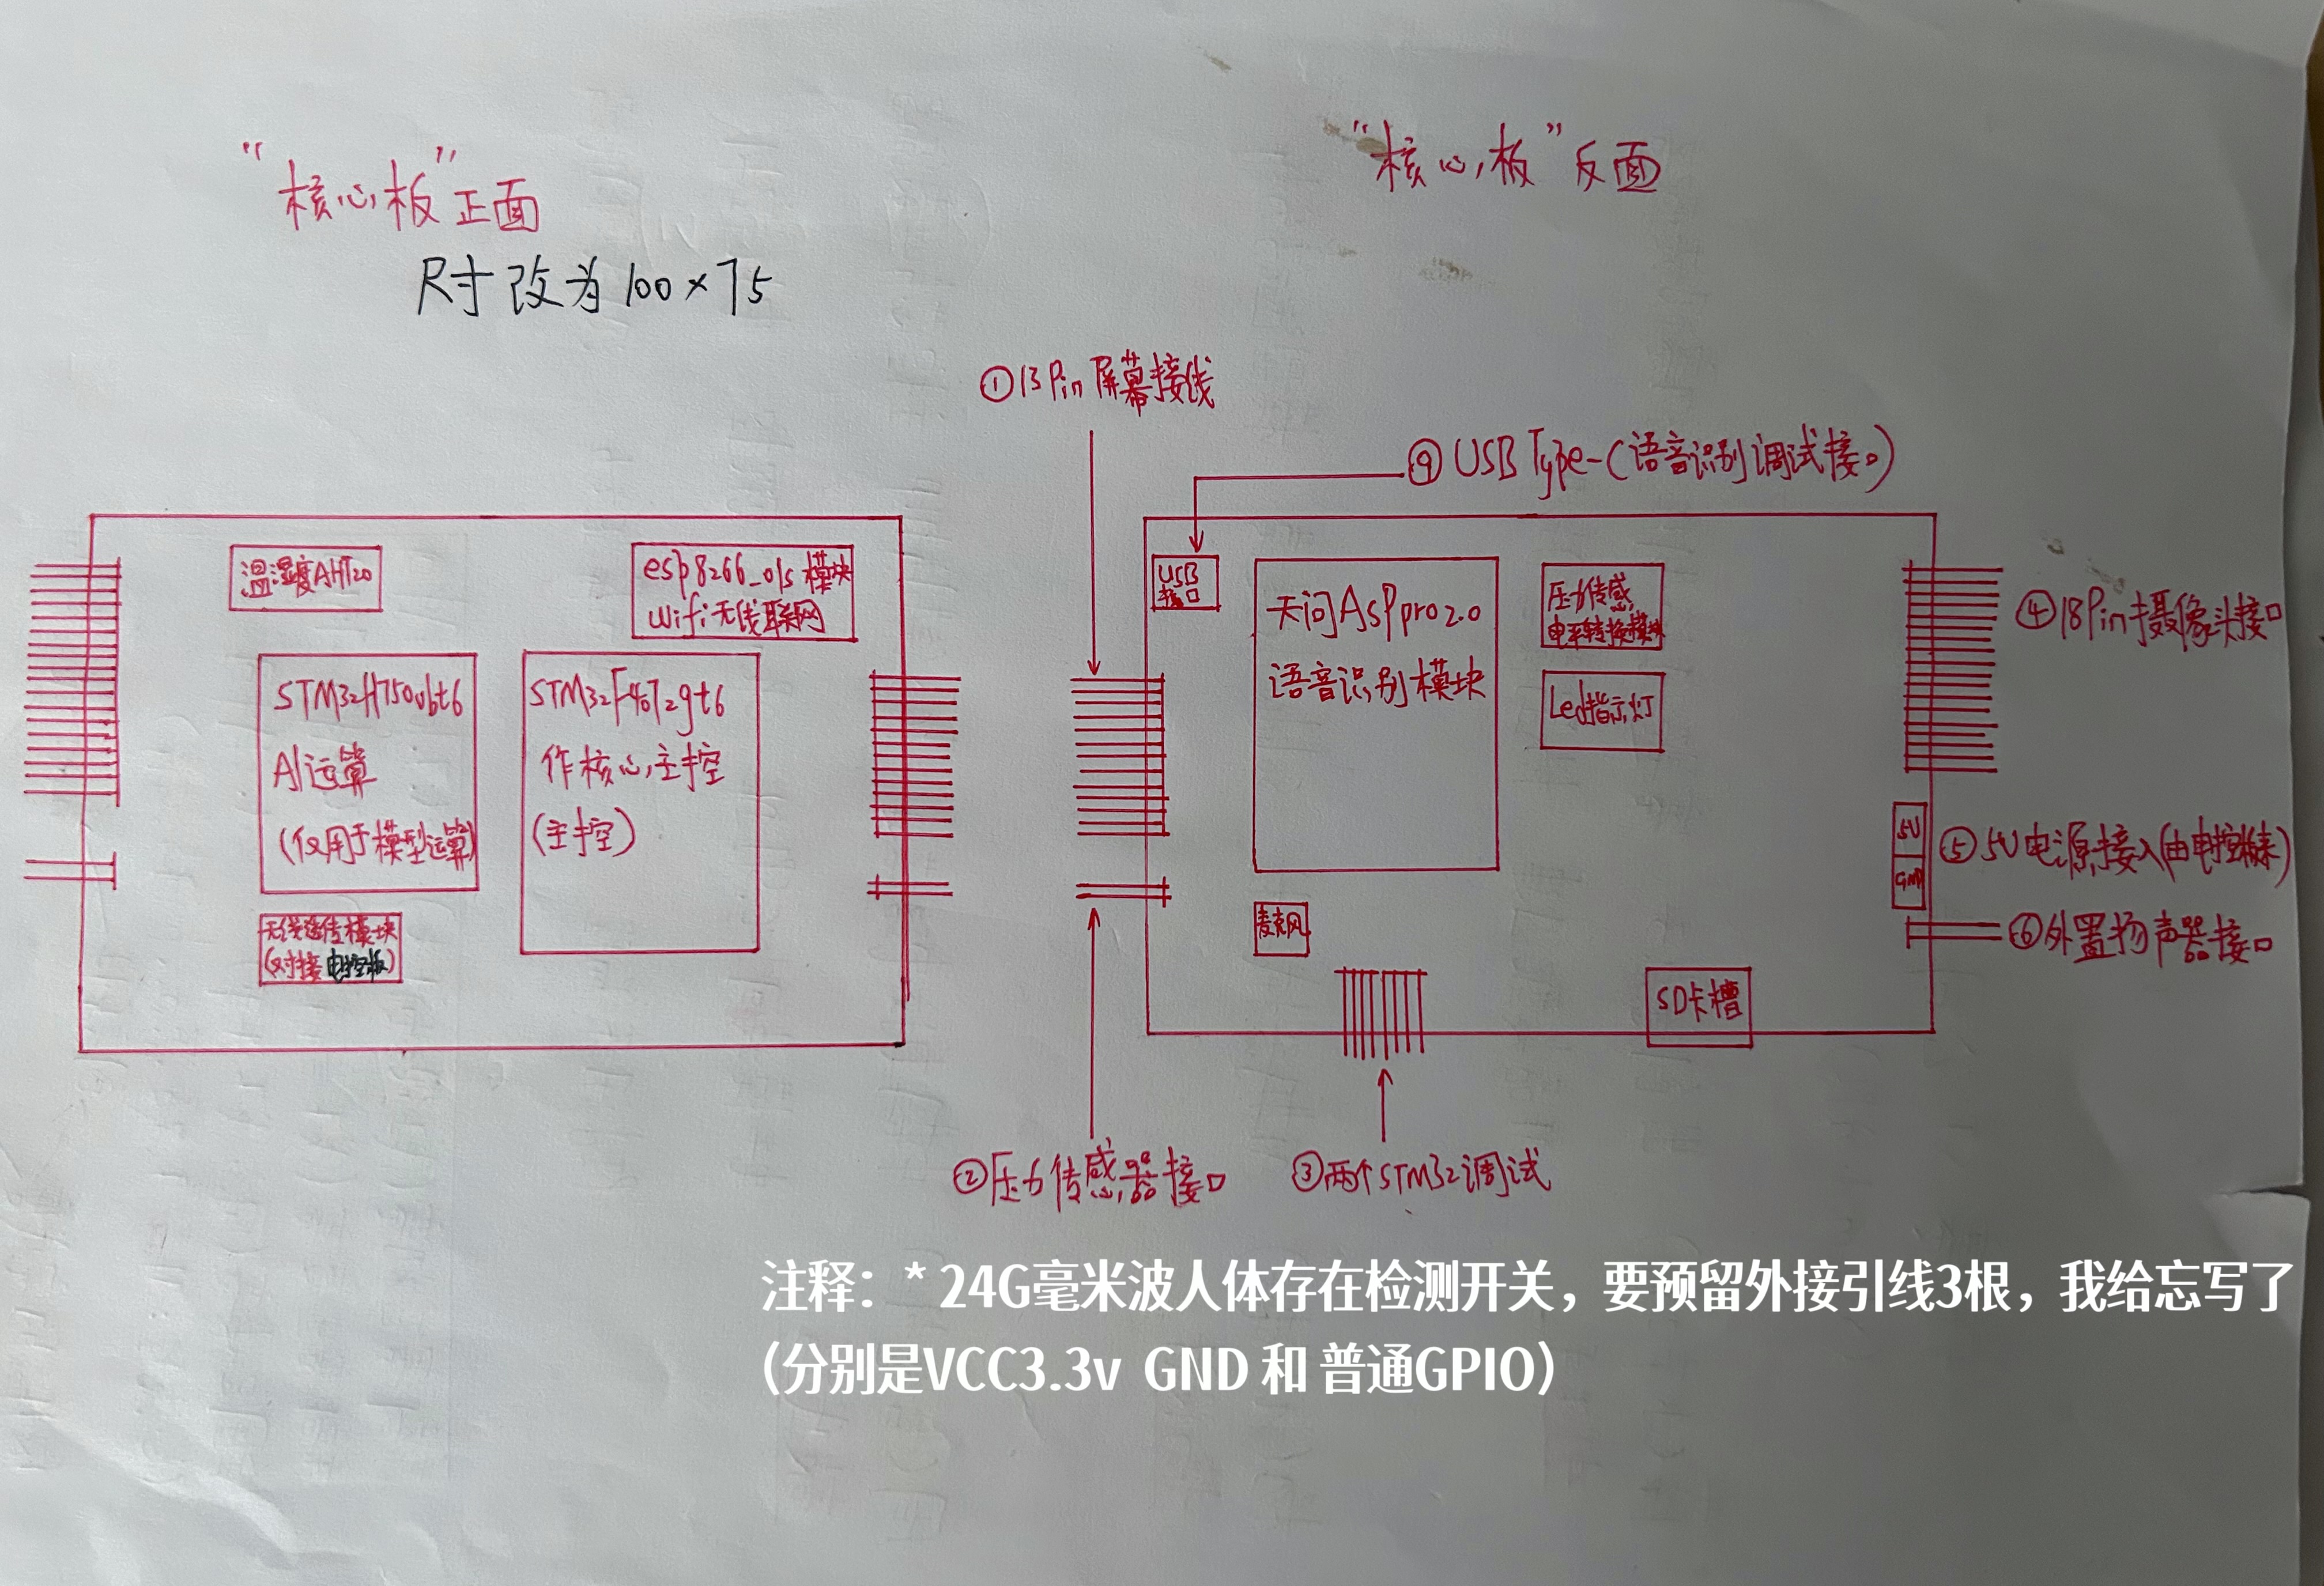 “核心板”正面
尺寸改为100×75
温湿度AHT20
esp8266_01s模块
Wifi无线联网
STM32H750vbt6
AI运算
(仅用于模型运算)
STM32F407zgt6
作核心主控
(主控)
无线透传模块
(对接电控板)
“核心板”反面
①13Pin屏幕接线
⑨USB Type-C语音识别调试接口)
USB
接口
天问ASPpro2.0
语音识别模块
压力传感
电平转换模块
Led指示灯
④18Pin摄像头接口
5V
GND
⑤5V电源接入(由电控板来)
⑥外置扬声器接口
麦克风
SD卡槽
②压力传感器接口
③两个STM32调试
注释：* 24G毫米波人体存在检测开关，要预留外接引线3根，我给忘写了
(分别是VCC3.3v GND 和 普通GPIO)